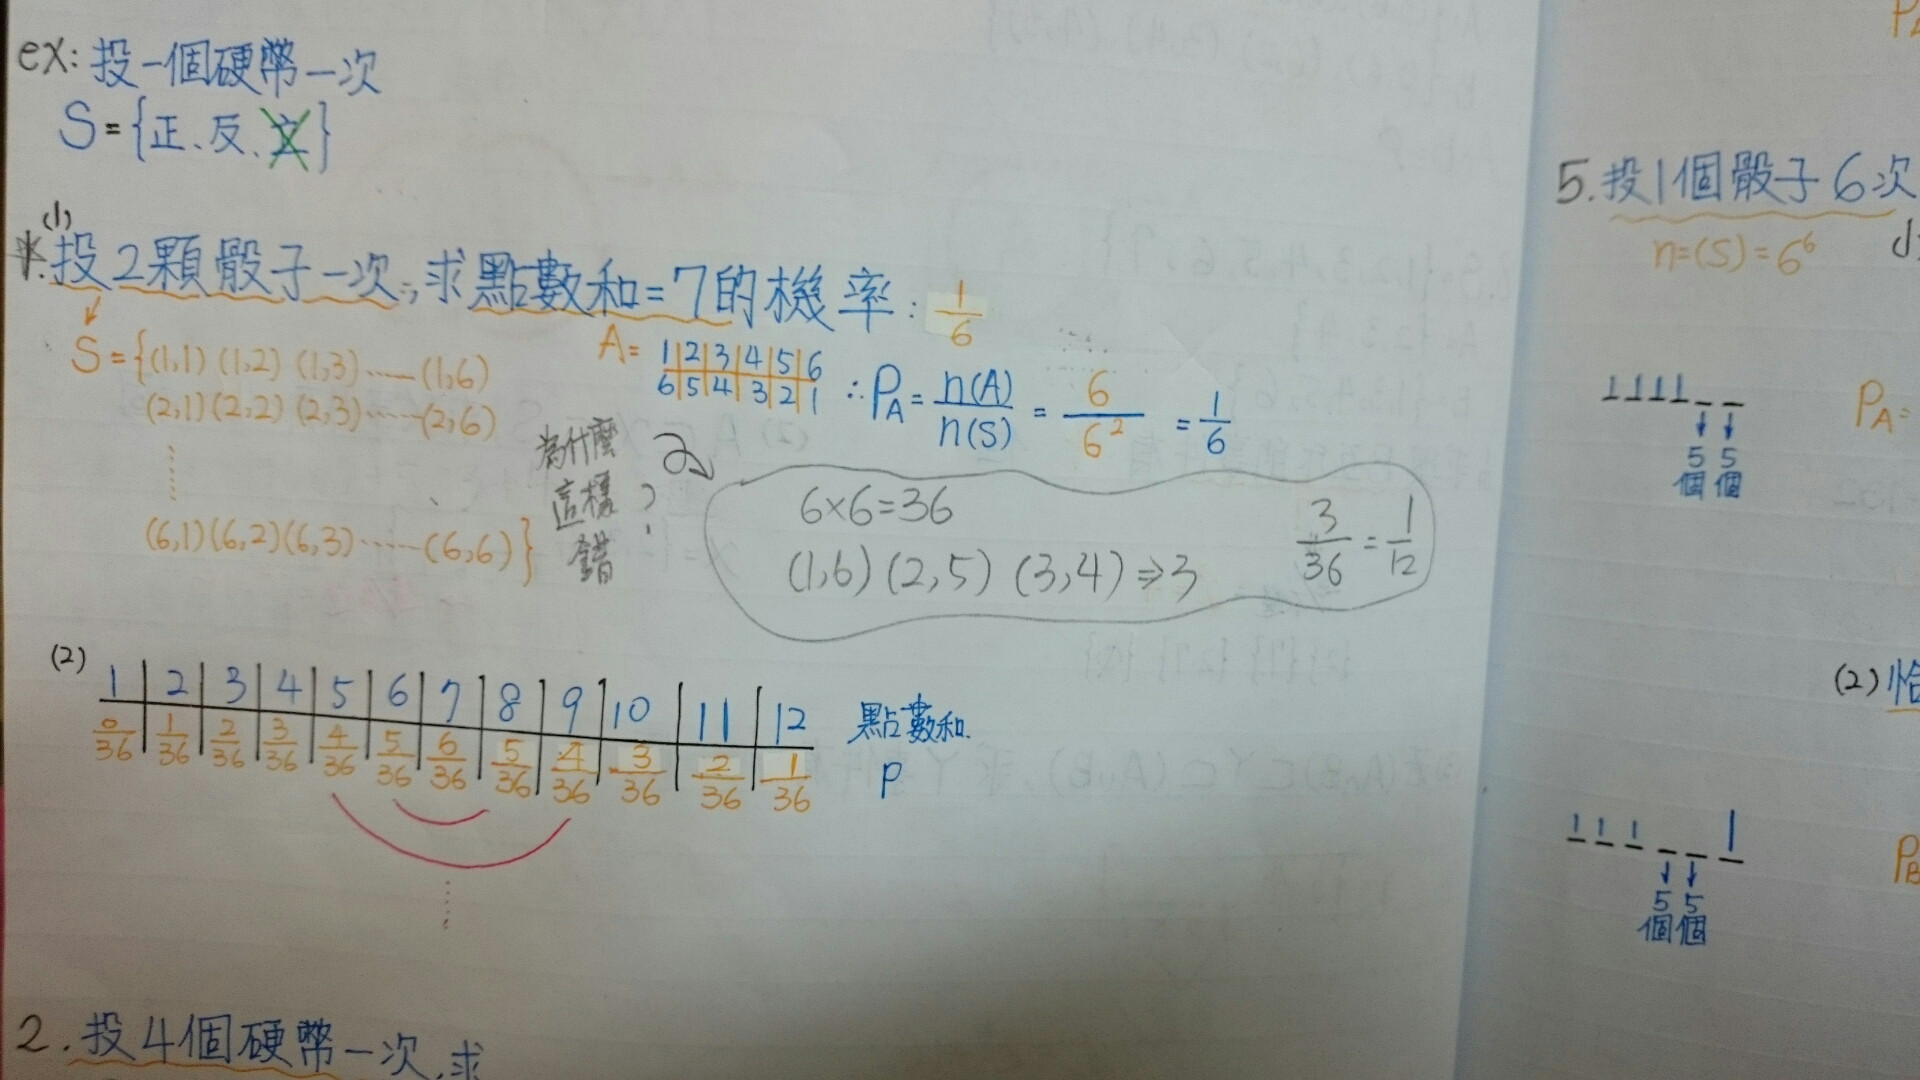 ex: 投一個硬幣一次
S={正、反、立}
(1)
*1.投2顆骰子一次,求點數和=7的機率: 1/6
S={(1,1) (1,2) (1,3)……(1,6)
(2,1)(2,2) (2,3)……(2,6)
⋮
(6,1)(6,2)(6,3)……(6,6)}
A= 1|2|3|4|5|6
6|5|4|3|2|1
∴P_A = n(A)/n(S) = 6/6² = 1/6
為什麼
這樣
錯?
6×6=36
(1,6) (2,5) (3,4) ⇒3
3/36 = 1/12
(2)
1|2|3|4|5|6|7|8|9|10|11|12 點數和
0/36|1/36|2/36|3/36|4/36|5/36|6/36|5/36|4/36|3/36|2/36|1/36 P
2.投4個硬幣一次,求
5.投1個骰子6次
n=(S)=6⁶
1 1 1 1 _ _
↓ ↓
5 5
個 個
P_A=
(2)恰
1 1 1 _ _ 1
↓ ↓
5 5
個 個
P_B